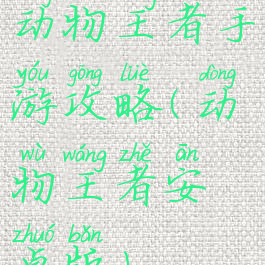 动物王者手
yóu gōng lüè dòng
游攻略(动
wù wáng zhě ān
物王者安
zhuó bǎn
卓版)